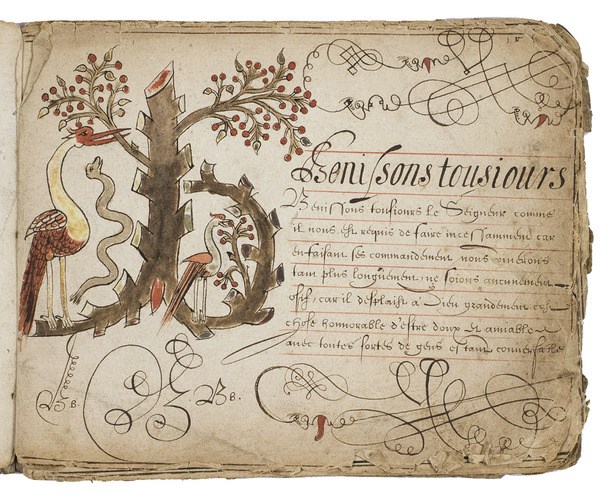 Benissons tousiours
Benissons tousiours le Seigneur comme
il nous est requis de faire incessamment car
en faisant ses commandement nous viverons
tant plus longuement, ne soions aucunement
osif, car il desplaist a Dieu grandement cest
chose honnorable d'estre doux et amiable
avec toutes sortes de gens estant conversable
B B. B B.